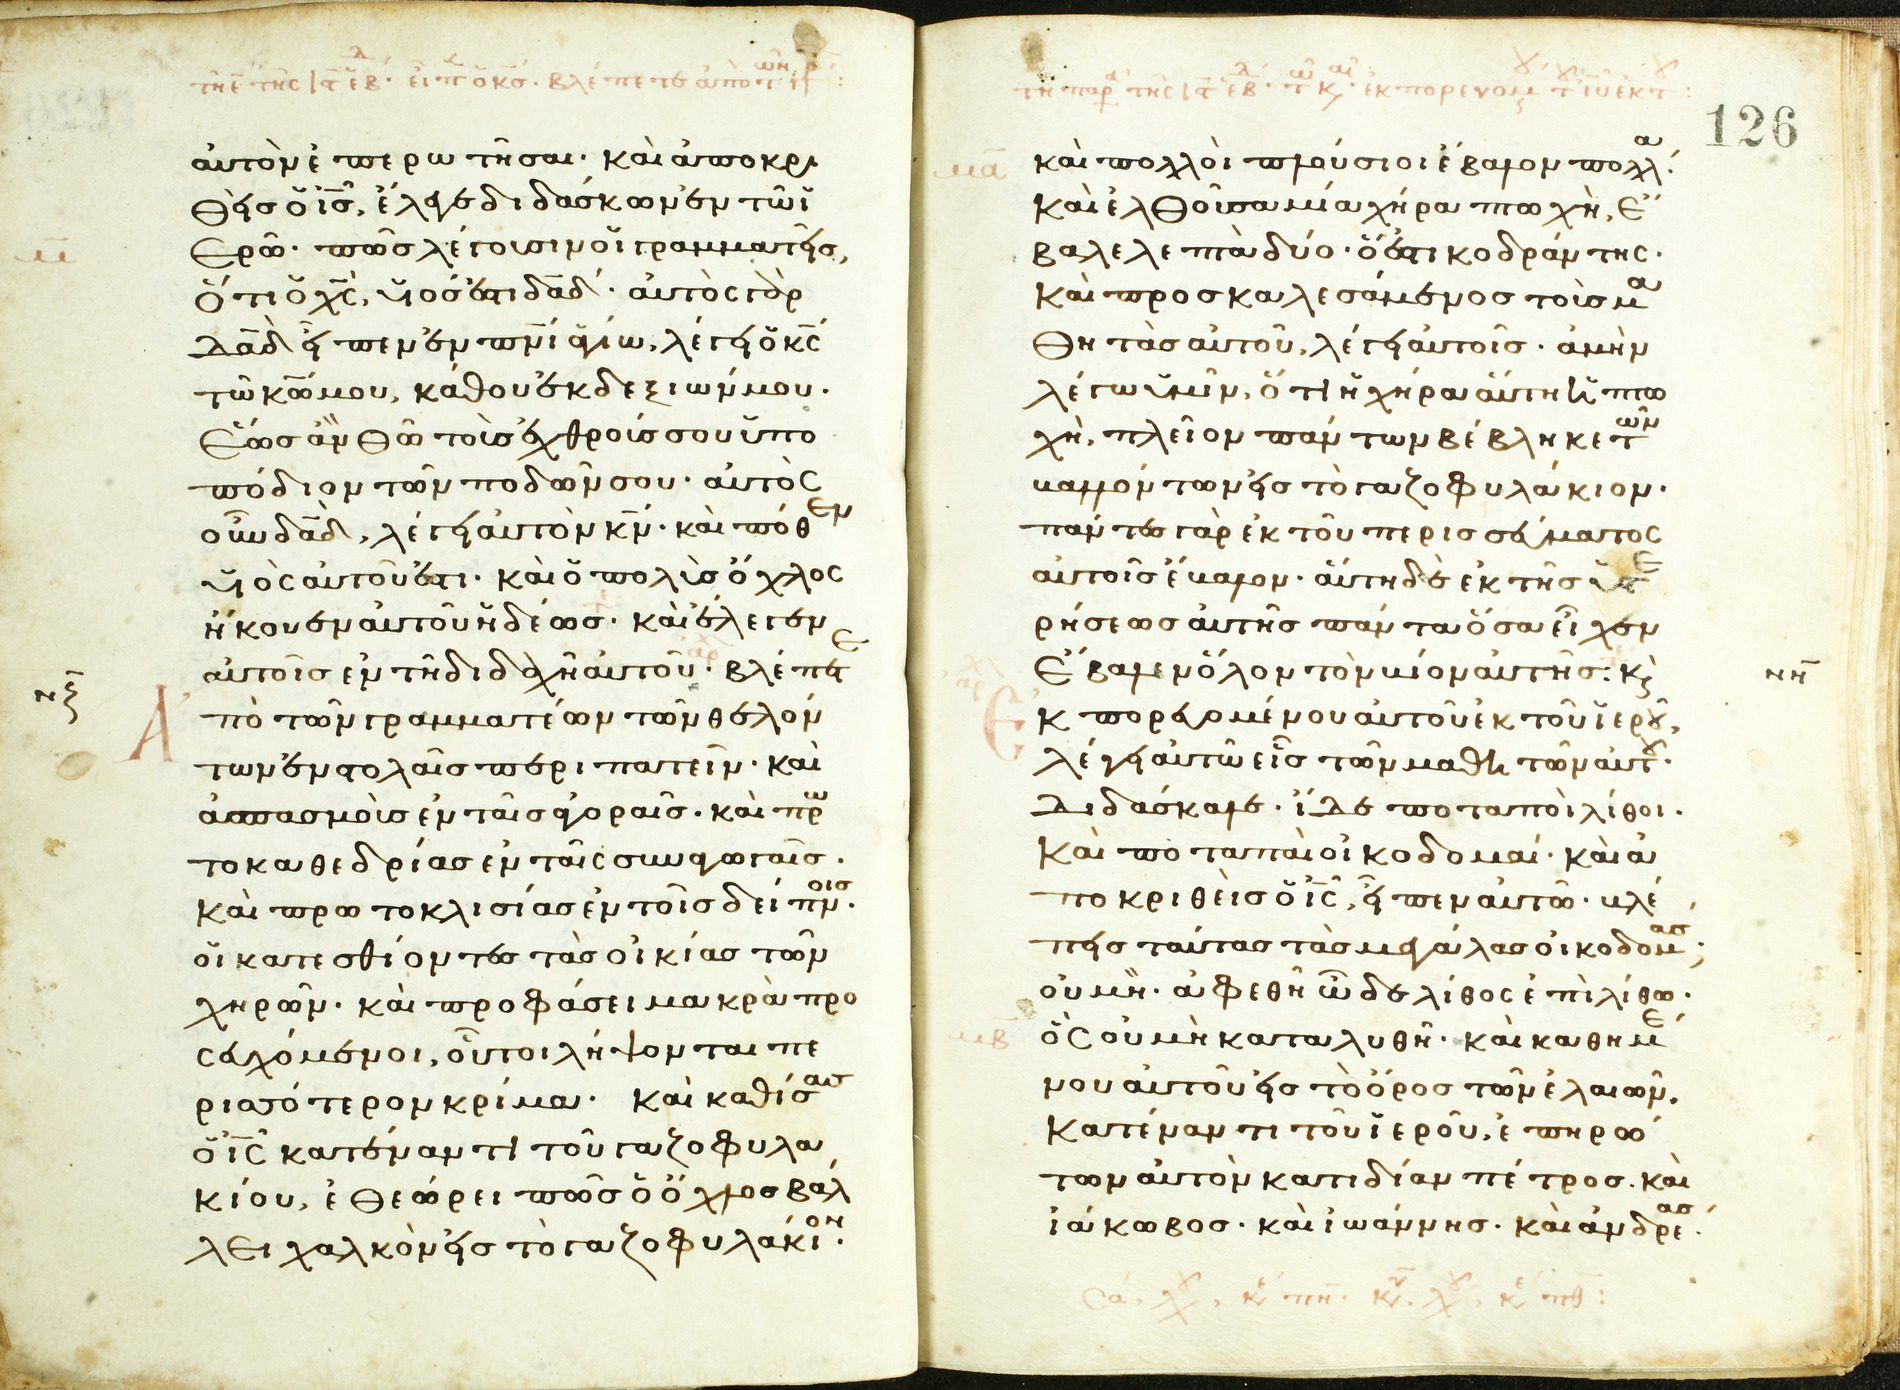 τῆ ε̄ τῆς ιϛ ἑβδ. εἶπεν ὁ κς. βλέπετε ἀπὸ τῶν γρ:
αὐτὸν ἐπερωτῆσαι· καὶ ἀποκρι
θεὶς ὁ ις, ἔλεγε διδάσκων ἐν τῶ ἱ
ερῶ· πῶς λέγουσιν οἱ γραμματεῖς,
μ̄
ὅτι ὁ χς, υἱός ἐστι δαδ· αὐτὸς γὰρ
δαδ εἶπεν ἐν πνι ἁγίω, λέγει ὁ κς
τῶ κω μου, κάθου ἐκ δεξιῶν μου.
ἕως ἂν θῶ τοὺς ἐχθρούς σου ὑπο
πόδιον τῶν ποδῶν σου· αὐτὸς
οὖν δαδ, λέγει αὐτὸν κν· καὶ πόθεν
υἱὸς αὐτοῦ ἐστι· καὶ ὁ πολὺς ὄχλος
ἤκουεν αὐτοῦ ἡδέως· καὶ ἔλεγεν
αὐτοῖς ἐν τῆ διδαχῆ αὐτοῦ· βλέπετε
νζ̄
Ἀ
πὸ τῶν γραμματέων τῶν θελόν
των ἐν στολαῖς περιπατεῖν· καὶ
ἀσπασμοὺς ἐν ταῖς ἀγοραῖς· καὶ πρω
τοκαθεδρίας ἐν ταῖς συναγωγαῖς.
καὶ πρωτοκλισίας ἐν τοῖς δείπνοις.
οἱ κατεσθίοντες τὰς οἰκίας τῶν
χηρῶν· καὶ προφάσει μακρὰ προ
σευχόμενοι, οὗτοι λήψονται πε
ρισσότερον κρίμα· καὶ καθίσας
ὁ ις κατέναντι τοῦ γαζοφυλα
κίου, ἐθεώρει πῶς ὁ ὄχλος βάλ
λει χαλκὸν εἰς τὸ γαζοφυλάκιον.
126
μᾱ
καὶ πολλοὶ πλούσιοι ἔβαλον πολλά.
καὶ ἐλθοῦσα μία χήρα πτωχὴ, ἔ
βαλε λεπτὰ δύο· ὅ ἐστι κοδράντης.
καὶ προσκαλεσάμενος τοὺς μα
θητὰς αὐτοῦ, λέγει αὐτοῖς· ἀμὴν
λέγω ὑμῖν, ὅτι ἡ χήρα αὕτη ἡ πτω
χὴ, πλεῖον πάντων βέβληκε τῶν
βαλλόντων εἰς τὸ γαζοφυλάκιον.
πάντες γὰρ ἐκ τοῦ περισσεύματος
αὐτοῖς ἔβαλον· αὕτη δὲ ἐκ τῆς ὑστε
ρήσεως αὐτῆς πάντα ὅσα εἶχεν
ἔβαλεν ὅλον τὸν βίον αὐτῆς: κὲ
νη̄
Ἐ
κπορευομένου αὐτοῦ ἐκ τοῦ ἱεροῦ,
λέγει αὐτῶ εἷς τῶν μαθη τῶν αὐτοῦ.
διδάσκαλε· ἴδε ποταποὶ λίθοι.
καὶ ποταπαὶ οἰκοδομαί· καὶ ἀ
ποκριθεὶς ὁ ις, εἶπεν αὐτῶ· βλέ
πεις ταύτας τὰς μεγάλας οἰκοδομάς;
οὐ μὴ· ἀφεθῆ ὧδε λίθος ἐπὶ λίθω.
μβ̄
ὃς οὐ μὴ καταλυθῆ· καὶ καθημέ
νου αὐτοῦ εἰς τὸ ὄρος τῶν ἐλαιῶν.
κατέναντι τοῦ ἱεροῦ, ἐπηρώ
των αὐτὸν κατιδίαν πέτρος. καὶ
ἰάκωβος· καὶ ἰωάννης· καὶ ἀνδρέας.